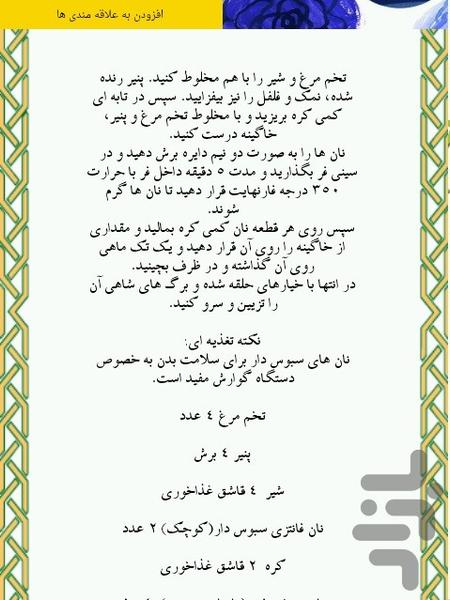 افزودن به علاقه مندی ها
تخم مرغ و شیر را با هم مخلوط کنید. پنیر رنده
شده، نمک و فلفل را نیز بیفزایید. سپس در تابه ای
کمی کره بریزید و با مخلوط تخم مرغ و پنیر،
خاگینه درست کنید.
نان ها را به صورت دو نیم دایره برش دهید و در
سینی فر بگذارید و مدت ۵ دقیقه داخل فر با حرارت
۳۵۰ درجه فارنهایت قرار دهید تا نان ها گرم
شوند.
سپس روی هر قطعه نان کمی کره بمالید و مقداری
از خاگینه را روی آن قرار دهید و یک تک ماهی
روی آن گذاشته و در ظرف بچینید.
در انتها با خیارهای حلقه شده و برگ های شاهی آن
را تزیین و سرو کنید.
نکته تغذیه ای:
نان های سبوس دار برای سلامت بدن به خصوص
دستگاه گوارش مفید است.
تخم مرغ ٤ عدد
پنیر ٤ برش
شیر ٤ قاشق غذاخوری
نان فانتزی سبوس دار(کوچک) ۲ عدد
کره ۲ قاشق غذاخوری
بازار